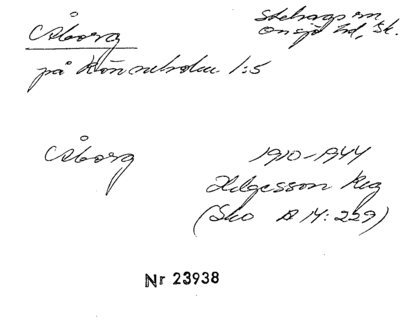 Åborg
Stehags sn
Onsjö hd, Sk.
på Rönneholm 1:5
Åborg
1910-1944
Helgesson Reg
(Sko A 14:229)
Nr 23938